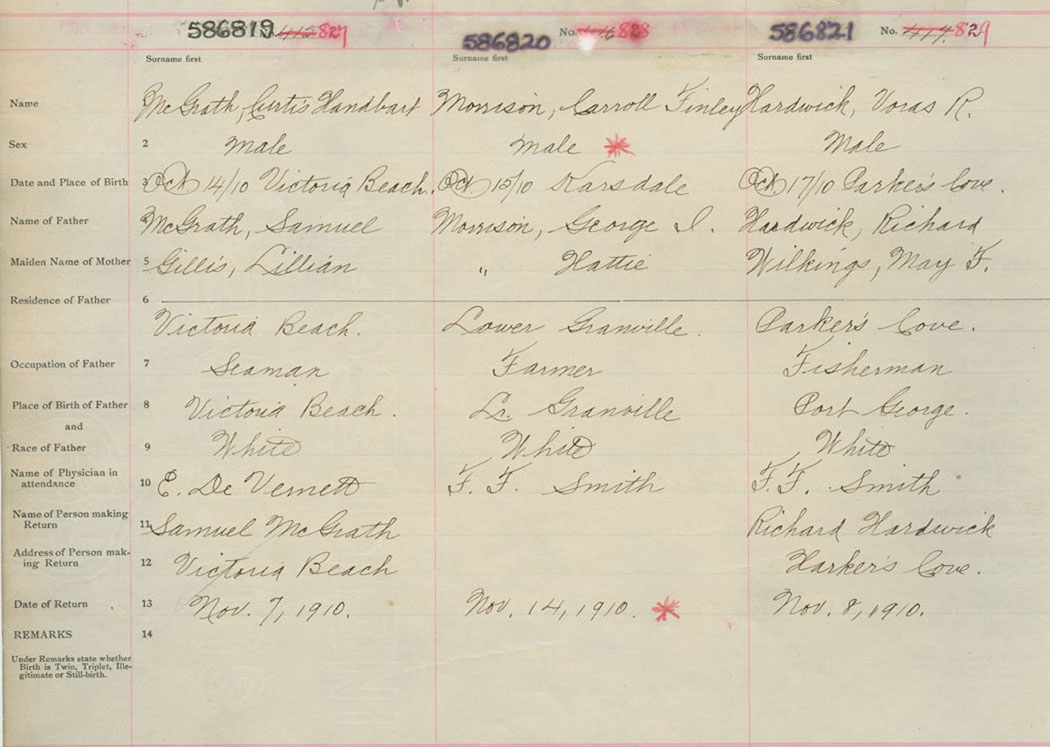 586819 827
586820 No. 828
586821 No. 829
Surname first Surname first Surname first
Name McGrath, Curtis Handbart Morrison, Carroll Finley Hardwick, Voras R.
Sex 2 Male Male Male
Date and Place of Birth 3 Oct 14/10 Victoria Beach. Oct 15/10 Karsdale Oct 17/10 Parker's Cove.
Name of Father 4 McGrath, Samuel Morrison, George I. Hardwick, Richard
Maiden Name of Mother 5 Gillis, Lillian " Hattie Wilkings, May F.
Residence of Father 6
Victoria Beach. Lower Granville. Parker's Cove.
Occupation of Father 7 Seaman Farmer Fisherman
Place of Birth of Father 8 Victoria Beach. Lr. Granville Port George.
and
Race of Father 9 White White White
Name of Physician in
attendance 10 E. De Vernett F. F. Smith F. F. Smith
Name of Person making
Return 11 Samuel McGrath Richard Hardwick
Address of Person mak-
ing Return 12 Victoria Beach Harker's Cove.
Date of Return 13 Nov. 7, 1910. Nov. 14, 1910. Nov. 8, 1910.
REMARKS 14
Under Remarks state whether
Birth is Twin, Triplet, Ille-
gitimate or Still-birth.